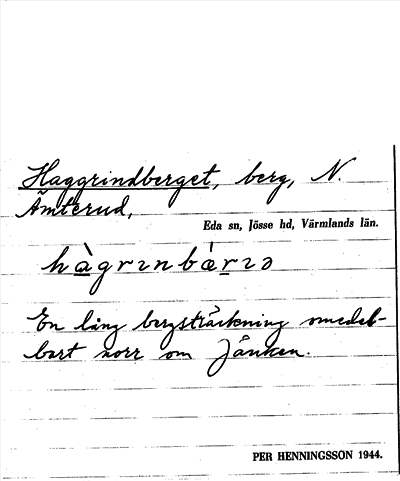 Haggrindberget, berg, N.
Åmterud,
Eda sn, Jösse hd, Värmlands län.
hàgrɪnbærɪə
En lång bergsträckning omedel-
bart norr om Jänken.
PER HENNINGSSON 1944.